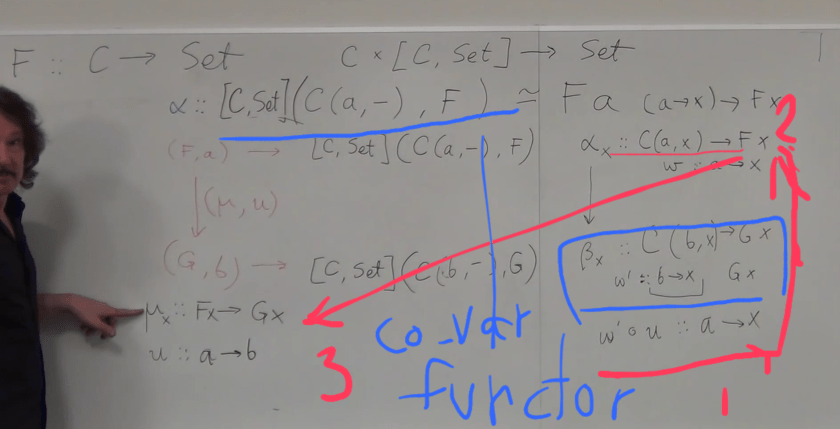 F :: C → Set
C × [C, Set] → Set
α :: [C,Set](C(a,-), F) ≃ Fa
(a→x) → Fx
(F,a) → [C,Set](C(a,-), F)
αₓ :: C(a,x) → Fx
w :: a → x
2
(μ, u)
(G,b) → [C,Set](C(b,-),G)
βₓ :: C(b,x) → Gx
w' :: b→x Gx
μₓ :: Fx → Gx
w' ∘ u :: a → x
u :: a → b
co_var
functor
3
1